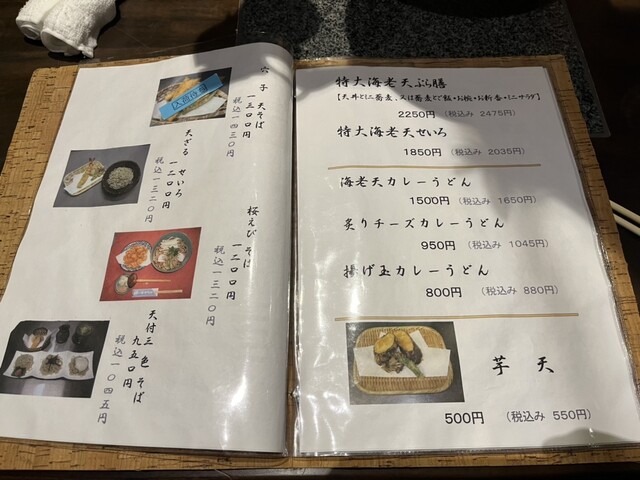 穴子天そば
一三〇〇円
税込一四三〇円
天ざる
せいろ
一二〇〇円
税込一三二〇円
桜えびそば
一二〇〇円
税込一三二〇円
天付三色そば
九五〇円
税込一〇四五円
特大海老天ぷら膳
【天丼とミニ蕎麦、又は蕎麦とご飯・お椀・お新香・ミニサラダ】
2250円 (税込み 2475円)
特大海老天せいろ
1850円 (税込み 2035円)
海老天カレーうどん
1500円 (税込み 1650円)
炙りチーズカレーうどん
950円 (税込み 1045円)
揚げ玉カレーうどん
800円 (税込み 880円)
芋天
500円 (税込み 550円)